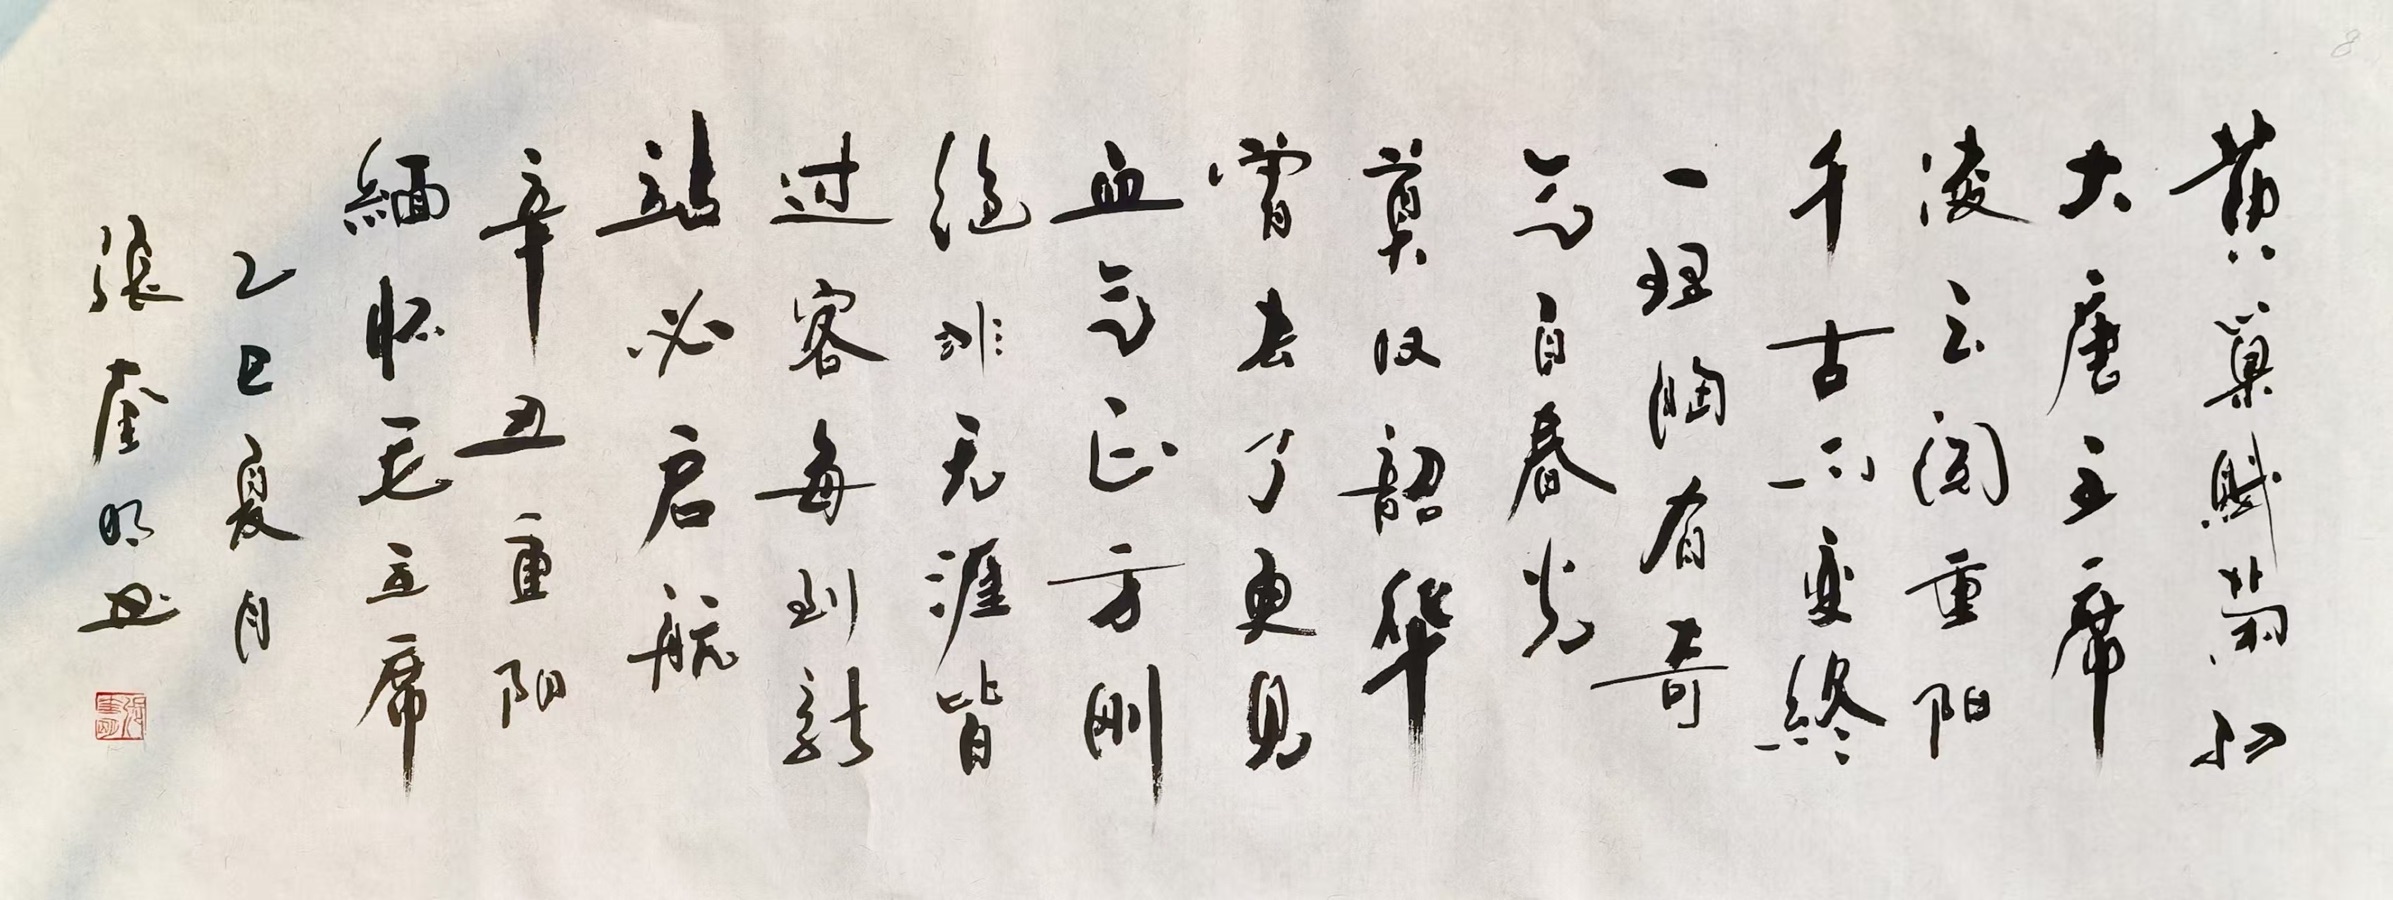 黄巢赋菊
大唐主席
凌云阅重阳
千古不变终
一理胸有奇
气自春光
莫叹韶华
去了更见
血气正方刚
绝非无涯皆
过客每到新
站必启航
辛丑重阳
緬怀毛主席
乙巳夏月
張奎明书